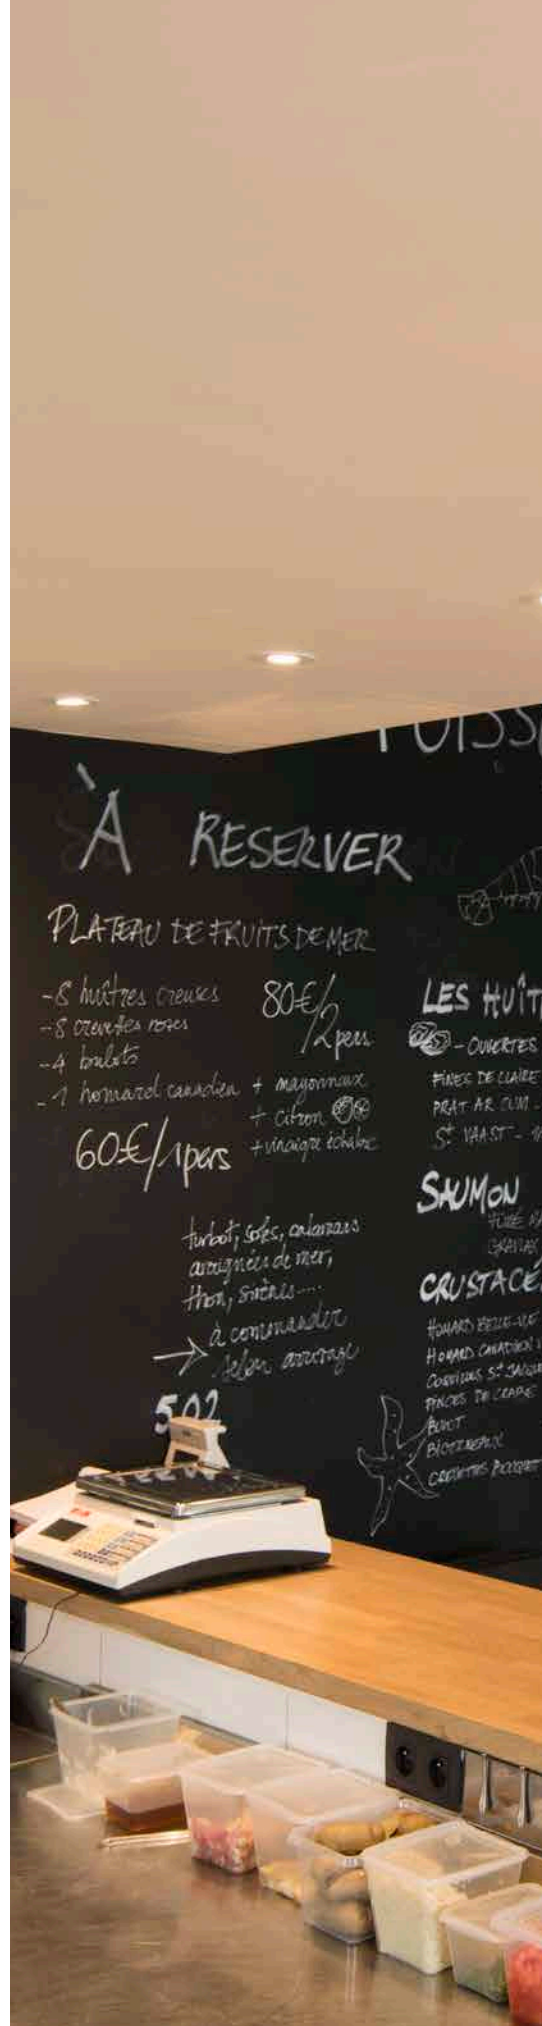 À RESERVER
PLATEAU DE FRUITS DE MER
-8 huîtres creuses
-8 crevettes roses
-4 bulots
-1 homard canadien
80€/2pers
+ mayonnaise
+ citron
+ vinaigre échalote
60€/1pers
turbot, soles, calamars
araignées de mer,
thon, sirènes....
à commander
selon arrivage
502
POISS
LES HUÎT
- OUVERTES
FINES DE CLAIRE
PRAT AR CUM -
St VAAST -
SAUMON
FUMÉ
GRAVLAX
CRUSTACÉ
HOMARD BELLE-VUE
HOMARD CANADIEN
COQUILLES St JACQUE
PINCES DE CRABE
BULOT
BIGORNEAUX
CREVETTES BOUQUET